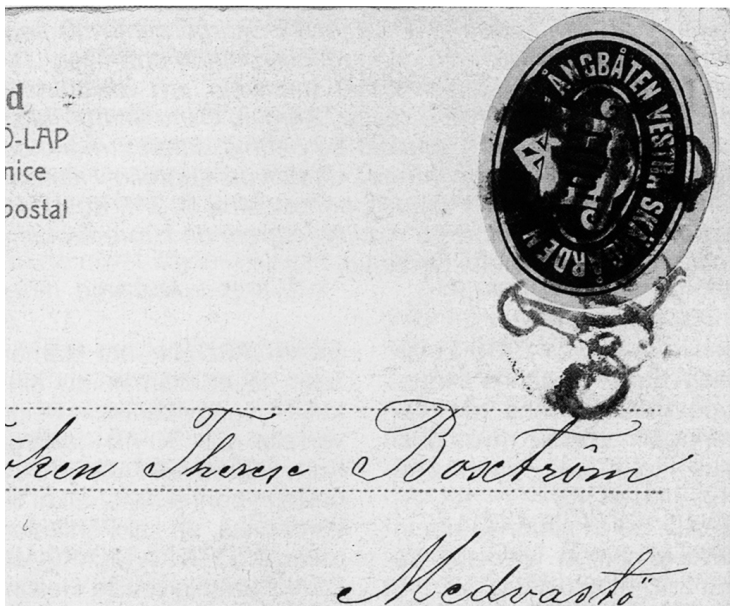 d
Ö-LAP
nice
postal
ÅNGBÅTEN VESTRA SKÄRGÅRDEN
öken Therese Boxström
Medvastö